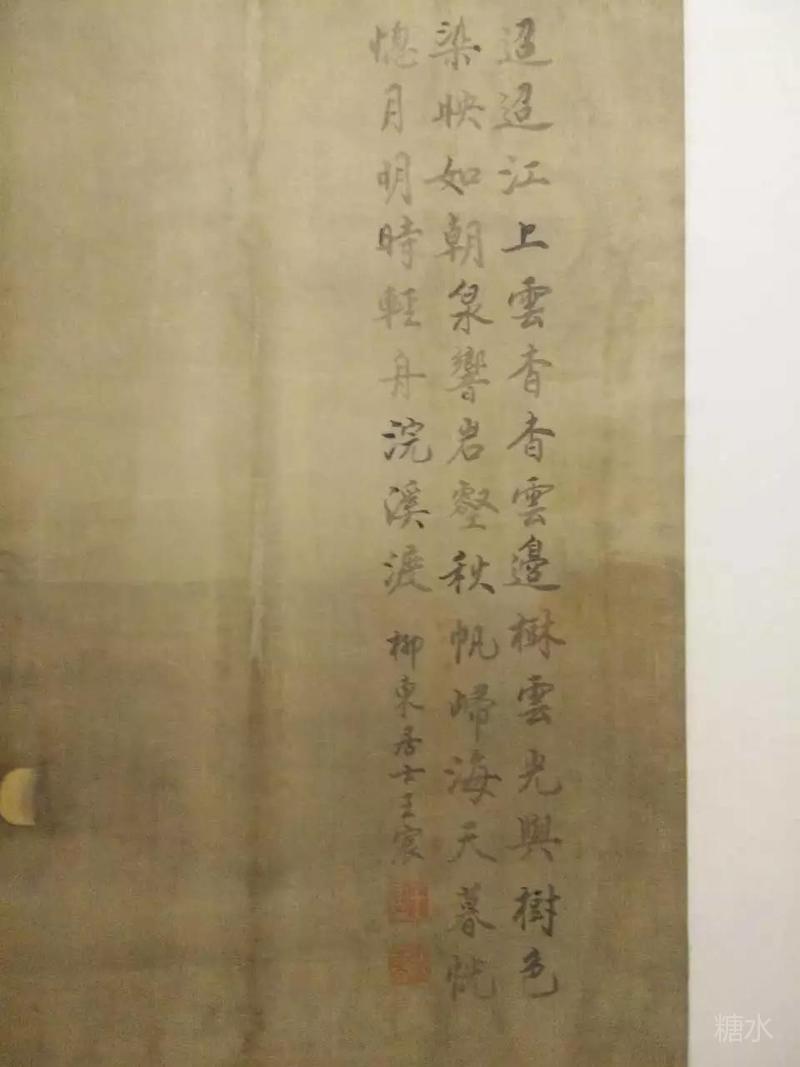 迢迢江上雲杳杳雲邊樹雲光與樹色
染映如朝泉響岩壑秋帆歸海天暮恍
惚月明時輕舟浣溪渡 柳東居士王宸
糖水